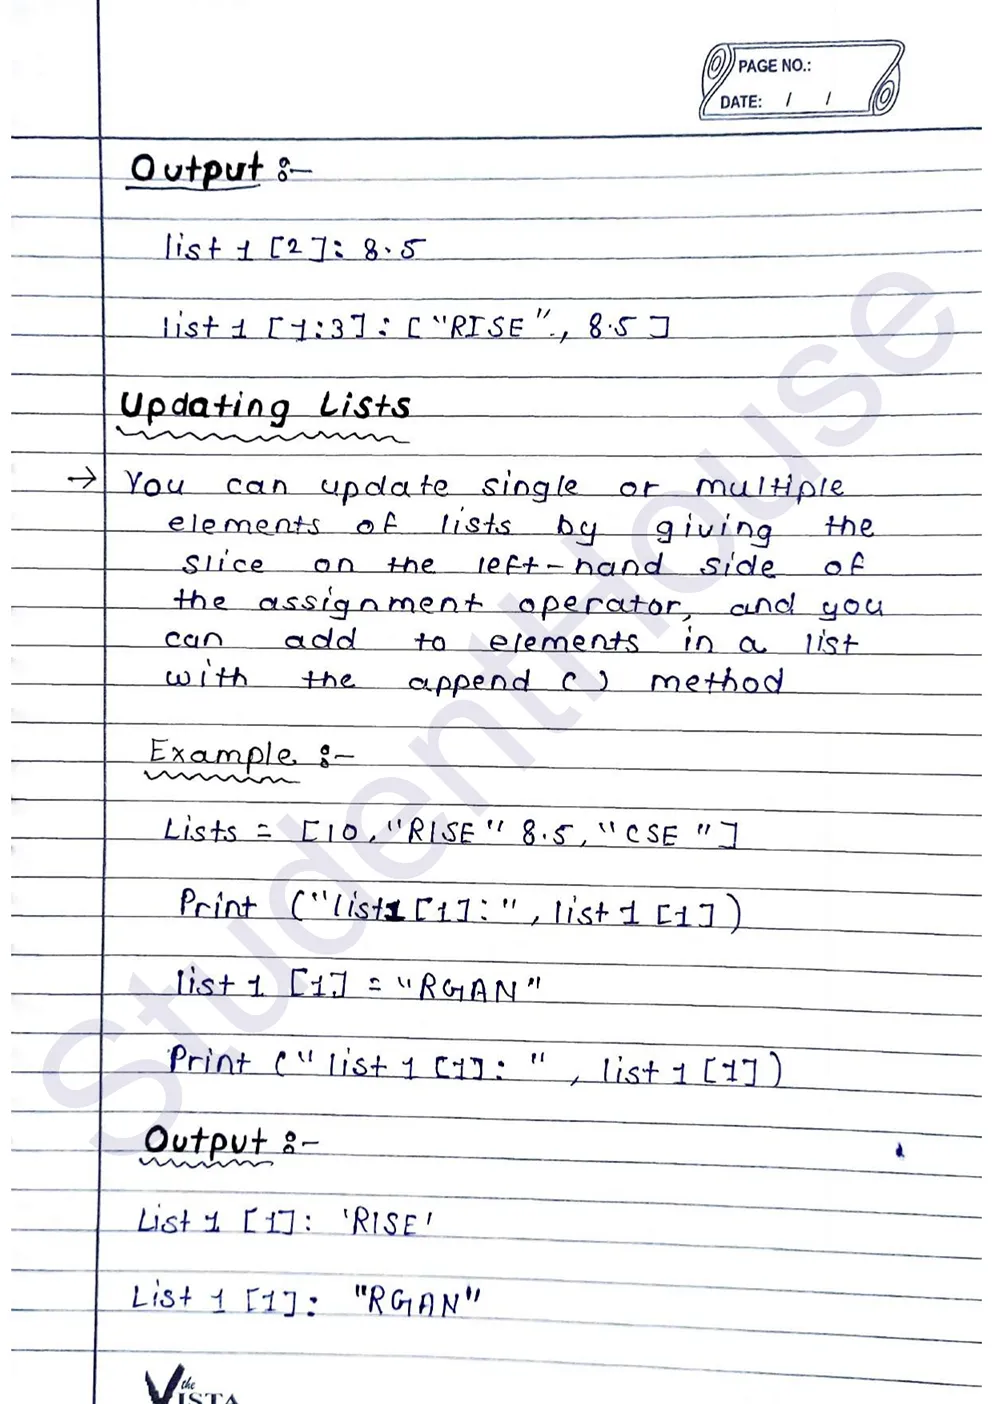 PAGE NO.:
DATE: / /
Output :-
list 1 [2]: 8.5
list 1 [1:3]: ["RISE", 8.5]
Updating Lists
→ You can update single or multiple
elements of lists by giving the
slice on the left-hand side of
the assignment operator, and you
can add to elements in a list
with the append () method
Example :-
Lists = [10, "RISE" 8.5, "CSE"]
Print ("list1 [1]:", list 1 [1])
list 1 [1] = "RGAN"
Print ("list 1 [1]: ", list 1 [1])
Output :-
List 1 [1]: 'RISE'
List 1 [1]: "RGAN"
the
VISTA
StudentHouse